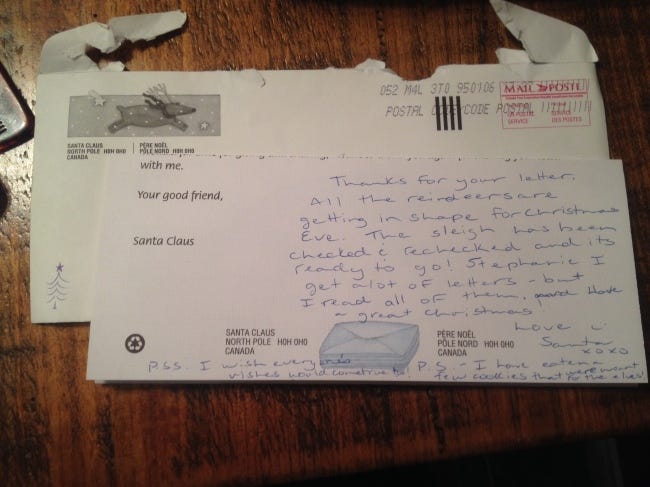 052 M4L 3T0 950106
POSTAL CODE/CODE POSTAL
MAIL POSTE
POSTAL SERVICE
SERVICE DES POSTES
SANTA CLAUS
NORTH POLE H0H 0H0
CANADA
PÈRE NOËL
PÔLE NORD H0H 0H0
CANADA
with me.
Your good friend,
Santa Claus
Thanks for your letter.
All the reindeers are
getting in shape for Christmas
Eve. The sleigh has been
checked & rechecked and its
ready to go! Stephanie I
get alot of letters - but
I read all of them. Have
a great christmas!
Love
Santa
xoxo
SANTA CLAUS
NORTH POLE H0H 0H0
CANADA
PÈRE NOËL
PÔLE NORD H0H 0H0
CANADA
P.S. - I have eaten a
few cookies that were meant for the elves!
P.SS. I wish everyone's
wishes would come true